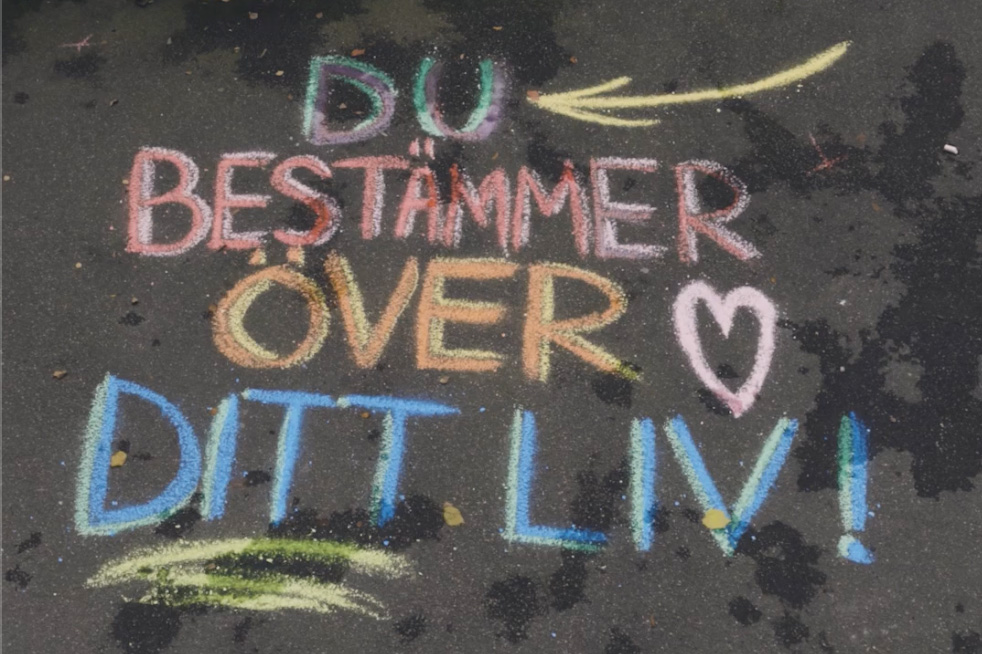 DU
BESTÄMMER
ÖVER
DITT LIV!